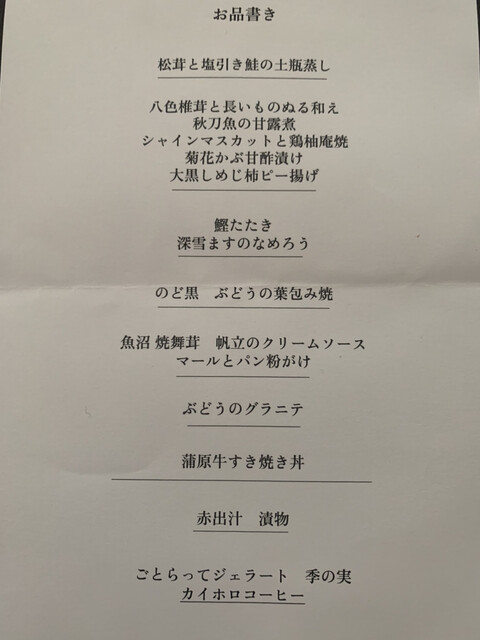 お品書き
松茸と塩引き鮭の土瓶蒸し
八色椎茸と長いものぬる和え
秋刀魚の甘露煮
シャインマスカットと鶏柚庵焼
菊花かぶ甘酢漬け
大黒しめじ柿ピー揚げ
鰹たたき
深雪ますのなめろう
のど黒　ぶどうの葉包み焼
魚沼 焼舞茸　帆立のクリームソース
マールとパン粉がけ
ぶどうのグラニテ
蒲原牛すき焼き丼
赤出汁　漬物
ごとらってジェラート　季の実
カイホロコーヒー